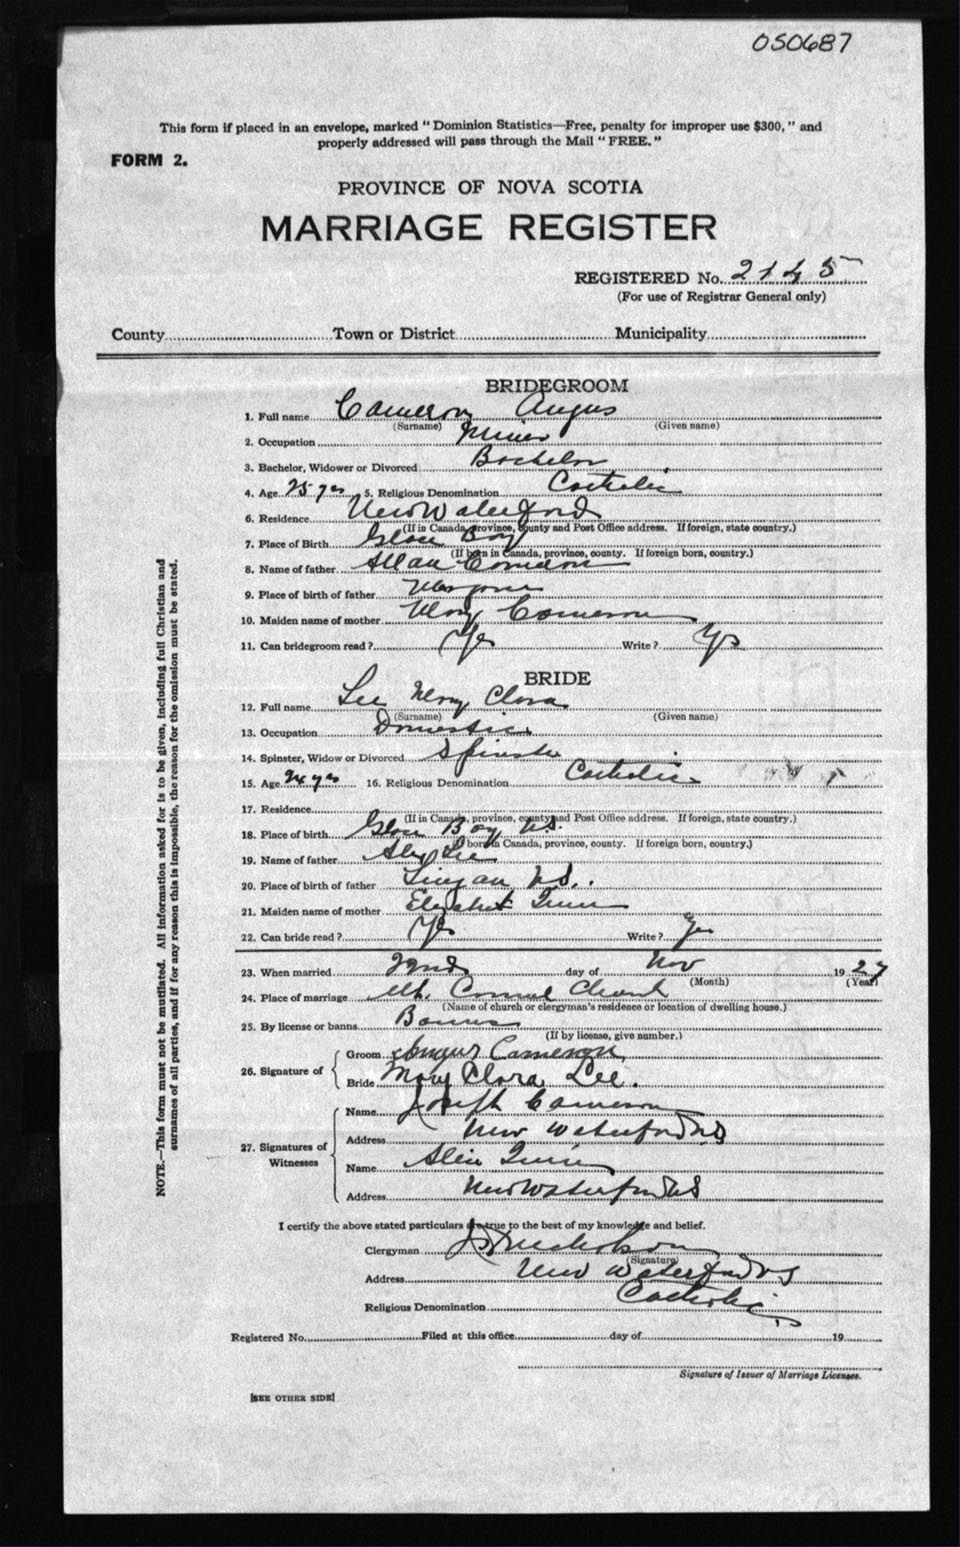 050687
This form if placed in an envelope, marked "Dominion Statistics—Free, penalty for improper use $300," and
properly addressed will pass through the Mail "FREE."
FORM 2.
PROVINCE OF NOVA SCOTIA
MARRIAGE REGISTER
REGISTERED No. 2145
(For use of Registrar General only)
County Town or District Municipality
BRIDEGROOM
1. Full name Cameron Angus
(Surname) (Given name)
2. Occupation Miner
3. Bachelor, Widower or Divorced Bachelor
4. Age 25 yrs 5. Religious Denomination Catholic
6. Residence New Waterford
(If in Canada, province, county and Post Office address. If foreign, state country.)
7. Place of Birth Glace Bay
(If born in Canada, province, county. If foreign born, country.)
8. Name of father Allan Cameron
9. Place of birth of father
10. Maiden name of mother Mary Cameron
11. Can bridegroom read? Yes Write? Yes
BRIDE
12. Full name Lee Mary Clara
(Surname) (Given name)
13. Occupation Domestic
14. Spinster, Widow or Divorced Spinster
15. Age 24 yrs 16. Religious Denomination Catholic
17. Residence
(If in Canada, province, county and Post Office address. If foreign, state country.)
18. Place of birth Glace Bay N.S.
born in Canada, province, county. If foreign born, country.)
19. Name of father Alex Lee
20. Place of birth of father Lingan N.S.
21. Maiden name of mother Elizabeth Quinn
22. Can bride read? Yes Write? Yes
23. When married 22nd day of Nov 1927
(Month) (Year)
24. Place of marriage Mt. Carmel Church
(Name of church or clergyman's residence or location of dwelling house.)
25. By license or banns Banns
(If by license, give number.)
26. Signature of
Groom Angus Cameron
Bride Mary Clara Lee.
27. Signatures of Witnesses
Name Joseph Cameron
Address New Waterford NS
Name Quinn
Address New Waterford NS
I certify the above stated particulars are true to the best of my knowledge and belief.
Clergyman Nicholson
(Signature)
Address New Waterford NS
Religious Denomination Catholic
Registered No. Filed at this office day of 19
Signature of Issuer of Marriage Licenses.
[SEE OTHER SIDE]
NOTE.—This form must not be mutilated. All information asked for is to be given, including full Christian and
surnames of all parties, and if for any reason this is impossible, the reason for the omission must be stated.